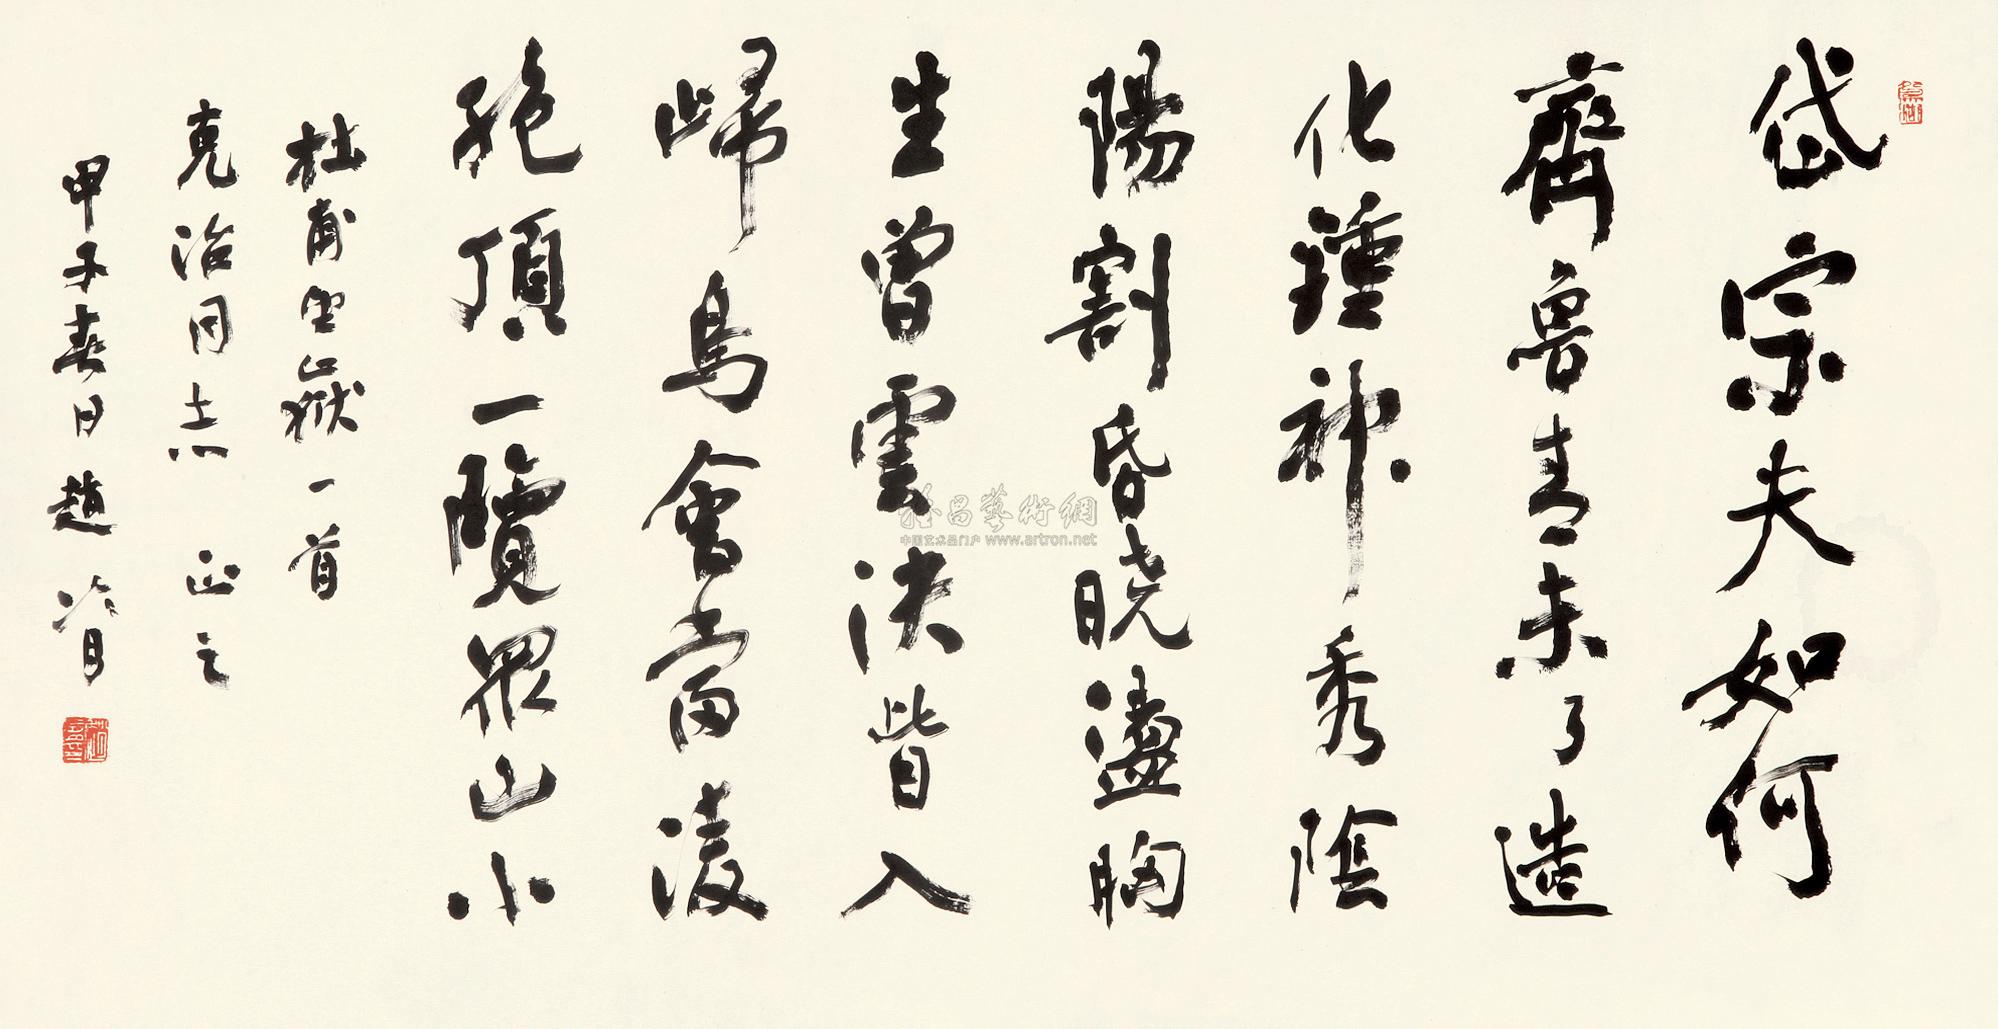 岱宗夫如何
齊魯青未了造
化鍾神秀陰
陽割昏曉盪胸
生曾雲決眥入
歸鳥會當凌
絕頂一覽眾山小
杜甫望嶽一首
克治同志 正之
甲子春日趙冷月
雅昌藝術網
中国艺术品门户 www.artron.net